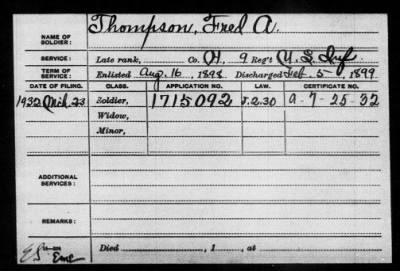 NAME OF SOLDIER: Thompson, Fred A.
SERVICE: Late rank, Co. H, 9 Reg't U.S. Inf
TERM OF SERVICE: Enlisted Aug. 16, 1898 Discharged Feb. 5, 1899
DATE OF FILING. CLASS. APPLICATION NO. LAW. CERTIFICATE NO.
1932 23 Soldier, 1715092 J.2.30 A-7-25-32
Widow,
Minor,
ADDITIONAL SERVICES:
REMARKS:
Died , 1 , at